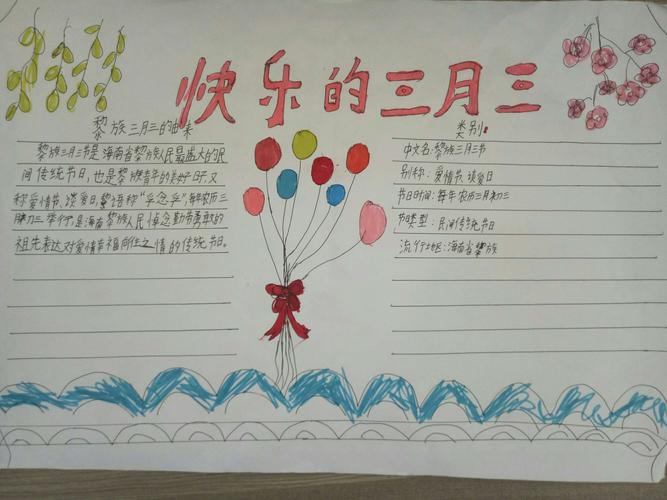 快乐的三月三
黎族三月三的由来
黎族三月三节是海南省黎族人民最盛大的民
间传统节日,也是黎族青年的美好日子,又
称爱情节、谈爱日,黎语称"孚念孚",每年农历三
月初三举行,是海南黎族人民悼念勤劳勇敢的
祖先表达对爱情幸福向往之情的传统节日。
类别:
中文名:黎族三月三节
别称:爱情节、谈爱日
节日时间:每年农历三月初三
节日类型:民间传统节日
流行地区:海南省黎族